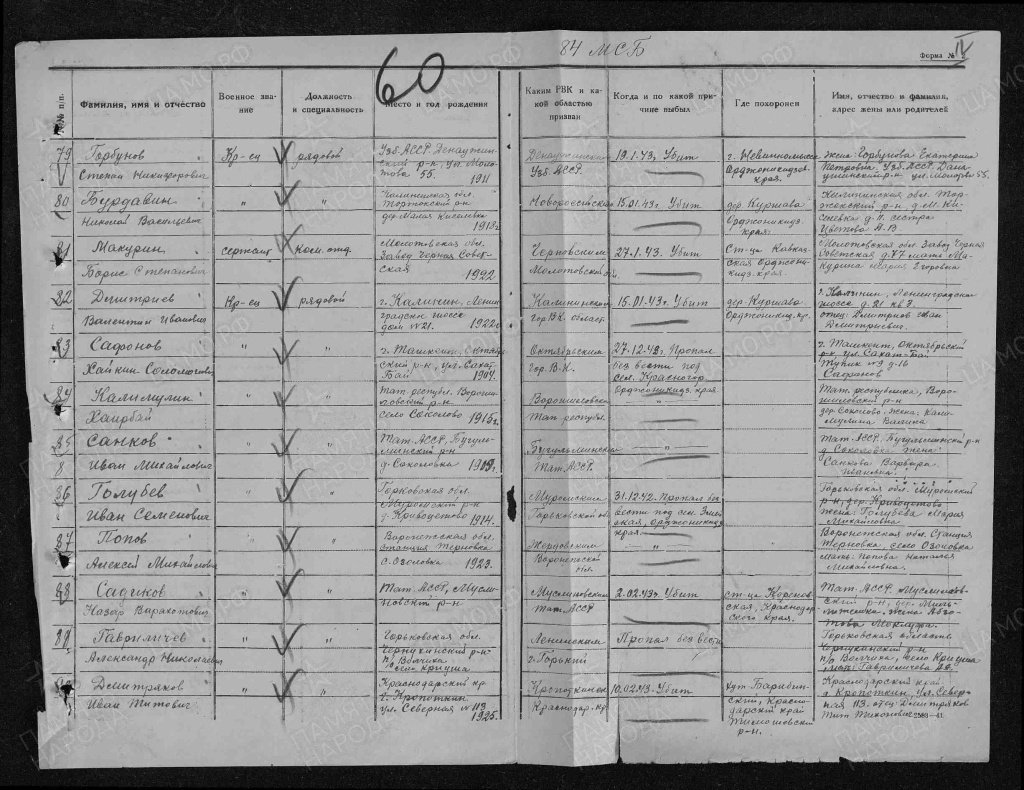 84 МСБ
60
Форма № IV
№№ п/п.
Фамилия, имя и отчество
Военное звание
Должность и специальность
Место и год рождения
Каким РВК и какой областью призван
Когда и по какой причине выбыл
Где похоронен
Имя, отчество и фамилия, адрес жены или родителей
79
Горбунов
Степан Никифорович
Кр-ец
рядовой
Узб. АССР.
ский р-н, ул. Моло-
това 55. 1911
Узб. АССР.
19.1.43г. Убит
г. Невинномысск
Орджоникидз.
края.
Жена Горбунова Екатерина
Петровна. Узб. АССР
р-н ул. Молотова 55.
80
Бурдавин
Николай Васильевич
"
"
Калининская обл.
р-н
дер. Малая Киселевка
1918г.
15.01.43г. Убит
дер. Куршава
Орджоникидз.
края.
Калининская обл.
р-н д. М. Ки-
д. 11. сестра
Цветова А.В
81
Макурин
Борис Степанович
сержант
Ком. отд.
Молотовская обл.
Завод Черная Совет-
ская 1922
Черновским
Молотовской обл.
27.1.43. Убит
Ст-ца Кавказ-
ская Орджони-
кидз. края.
Молотовская обл. Завод Черная
Советская д. 77 мать Ма-
курина Мария Егоровна
82
Дмитриев
Валентин Иванович
Кр-ец
рядовой
г. Калинин, Ленин-
градское шоссе
дом № 21. 1922г
Калининский
Гор ВК област.
15.01.43г. Убит
дер. Куршава
Орджоникидз. кр.
г. Калинин, Ленинградское
шоссе д. 21 кв. 7.
отец: Дмитриев Иван
Дмитриевич.
83
Сафонов
"
"
г. Ташкент, Октябрь-
ский р-н, ул. Сакат-
Бай 1904.
Октябрьским
Гор. В-К.
27.12.42. Пропал
без вести под
сел. Красногор
Орджоникидз. края.
г. Ташкент, Октябрьский
р-н, ул. Сакат-Бай
Тупик № 9 д. 16
Сафонов
84
Калимулин
Хайрбай
"
"
Тат. республ. Вороши-
ловский р-н
село Соколово 1915г.
Ворошиловск
Тат. республ.
"
Тат. республика, Воро-
шиловский р-н
дер. Соколово жена: Кали-
мулина Валина
85
Санков
Иван Михайлович
"
"
Тат. АССР, Бугуль-
минский р-н
д. Соколовка 1919г.
Бугульминский
Тат. АССР.
"
"
Тат. АССР. Бугульминский р-н
д. Соколовка жена:
Санкова Варвара
Ивановна.
86
Голубев
Иван Семенович
"
"
Горьковская обл.
Муромский р-н
д. Кривоцетово 1914.
Муромским
Горьковской обл.
31.12.42. Пропал без
вести под сел.
Орджоникидз.
края.
Горьковская обл. Муромский
р-н, дер. Кривоцетово
жена: Голубева Мария
Михайловна
87
Попов
Алексей Михайлович
"
"
Воронежская обл.
станция Терновка
с. Озоловка 1923.
Воронежской
обл.
"
Воронежская обл. Станция
Терновка, село Озоловка
мать: Попова Наталья
Михайловна.
88
Садиков
Назар
"
"
Тат. АССР, Мусли-
мовский р-н
Муслимовским
Тат. АССР
2.02.43г. Убит
ст-ца Коренов-
ская, Краснодар-
ского края.
Тат. АССР. Муслимов-
ский р-н, дер.
жена
89
Гавриличев
Александр Николаевич
"
"
Горьковская обл.
р-н
п/о Волчиха
село Криуша
Ленинским
г. Горький
Пропал без вести
Горьковская область
р-н
п/о Волчиха, село Криуша
мать: Гавриличева
90
Дмитряков
Иван Титович
"
"
Краснодарский кр
г. Кропоткин
ул. Северная № 113
1925.
Кропоткинск
Краснодар. кр.
10.02.43. Убит
хут.
Красно-
дарский край
Тимошевский
р-н.
Краснодарский край.
г. Кропоткин, ул. Север-
ная 113. отец: Дмитряков
Тит Тихонович 2588—41